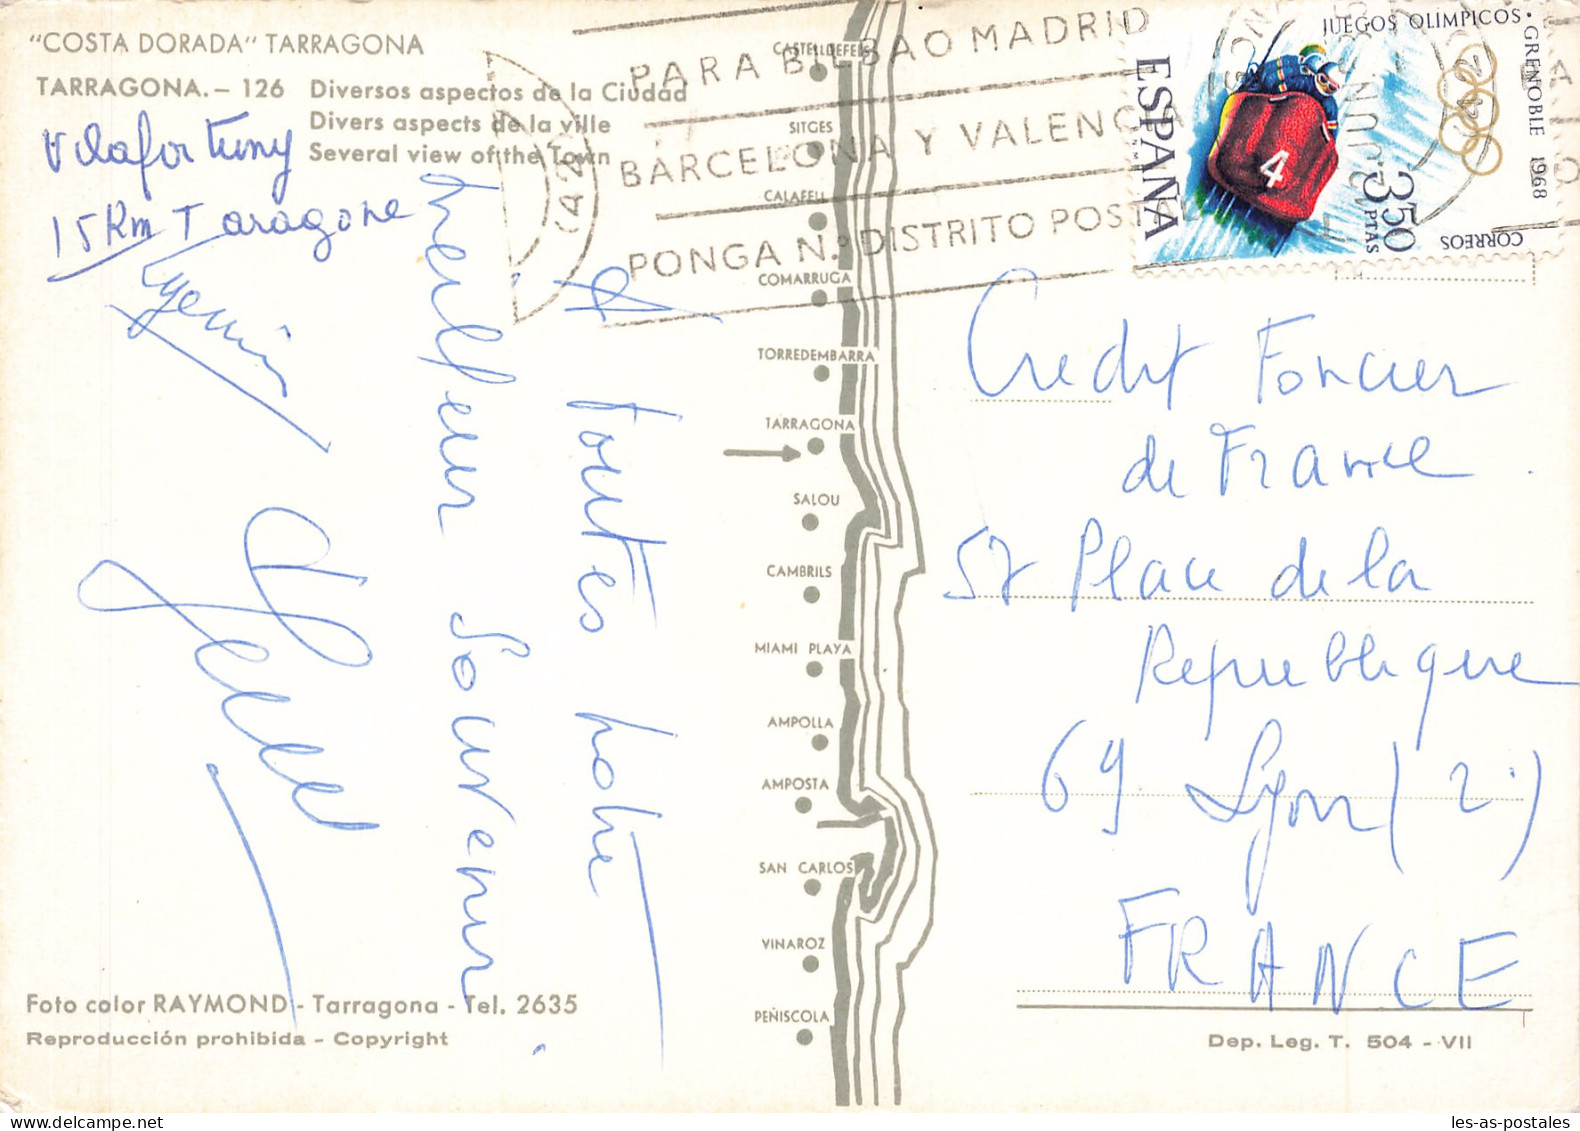 "COSTA DORADA" TARRAGONA
TARRAGONA.– 126 Diversos aspectos de la Ciudad
Divers aspects de la ville
Several view of the Town
Vilafortuny
15 Km Taragone
A toutes notre
meilleur souvenir
PARA BILBAO MADRID
BARCELONA Y VALENCIA
PONGA N.º DISTRITO POSTAL
JUEGOS OLIMPICOS · GRENOBLE 1968
ESPAÑA
4
3'50
PTAS
CORREOS
CASTELLDEFELS
SITGES
CALAFELL
COMARRUGA
TORREDEMBARRA
TARRAGONA
SALOU
CAMBRILS
MIAMI PLAYA
AMPOLLA
AMPOSTA
SAN CARLOS
VINAROZ
PEÑISCOLA
Credit Foncier
de France
57 Place de la
Republique
69 Lyon (2)
FRANCE
Foto color RAYMOND - Tarragona - Tel. 2635
Reproducción prohibida - Copyright
Dep. Leg. T. 504 - VII